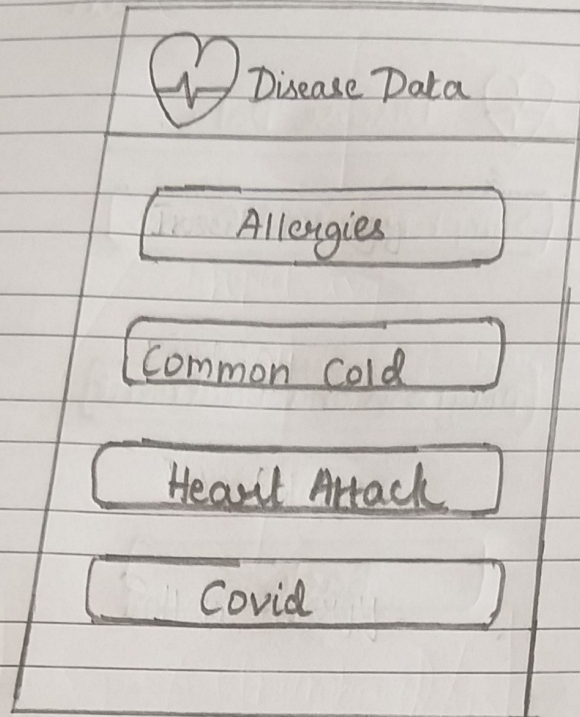 Disease Data
Allergies
Common Cold
Heart Attack
Covid